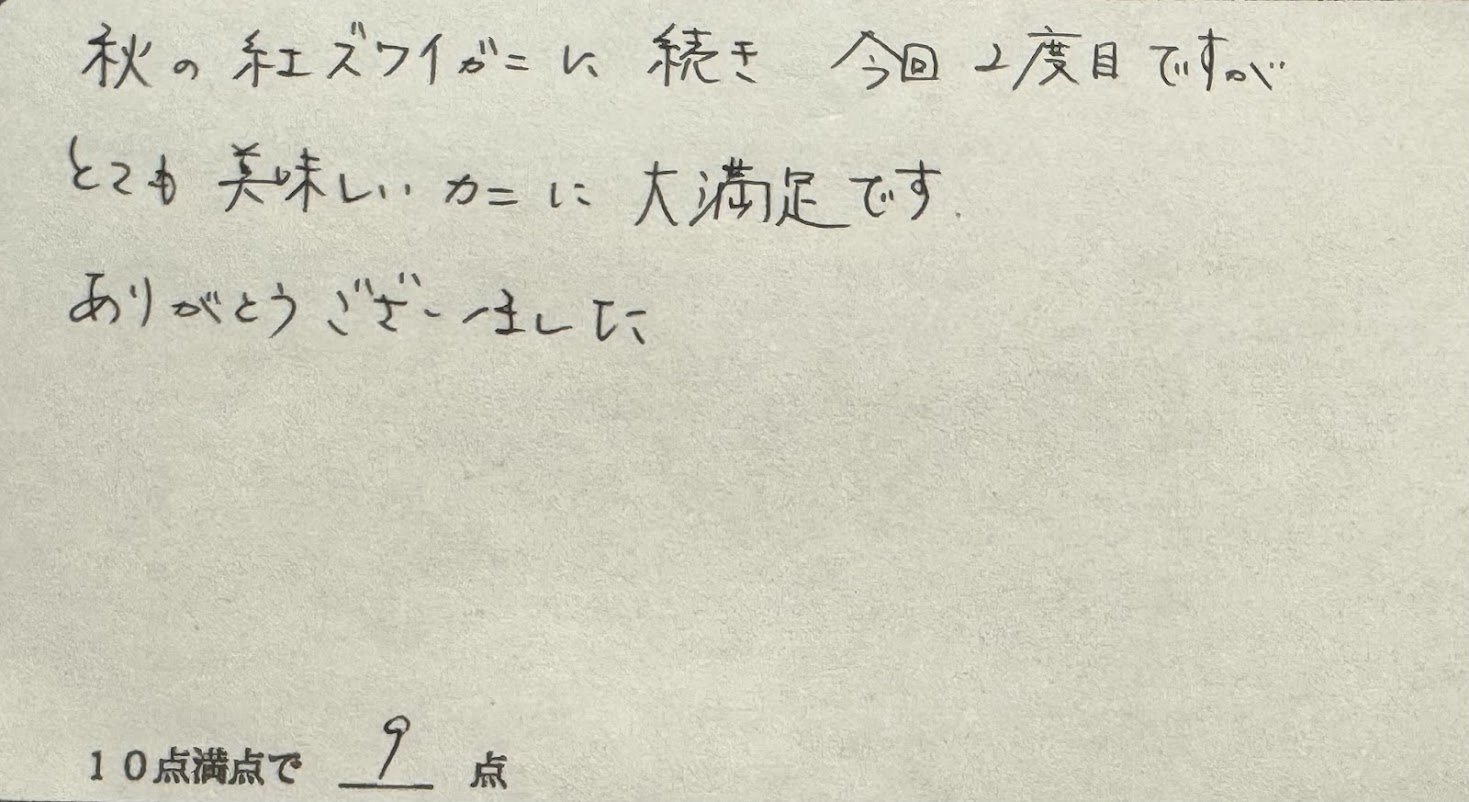 秋の紅ズワイガニに続き 今回2度目ですが
とても美味しいカニに大満足です.
ありがとうございました
10点満点で 9 点